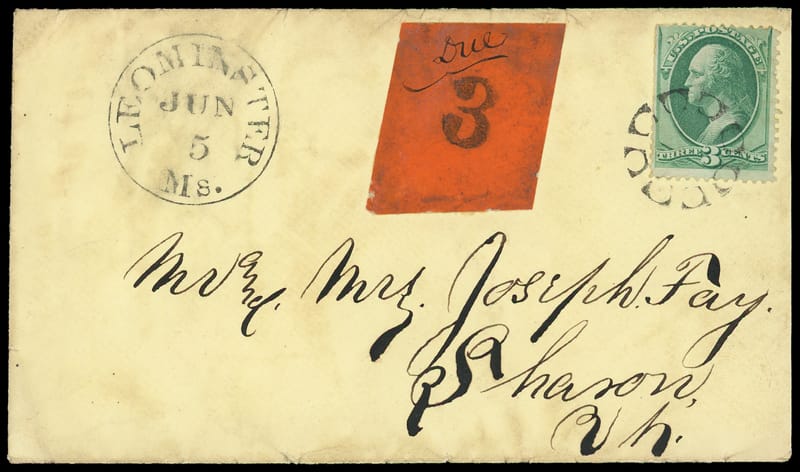 LEOMINSTER
JUN
5
Ms.
Due
3
U.S. POSTAGE
THREE 3 CENTS
Mr & Mrs. Joseph Fay.
Sharon,
Vt.